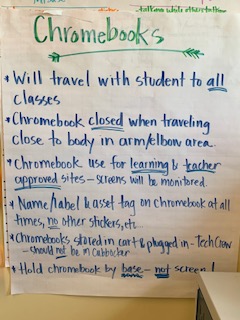 talking while others talking
Chromebooks
* Will travel with student to all
classes
* Chromebook closed when traveling
close to body in arm/elbow area.
* Chromebook use for learning & teacher
approved sites - screens will be monitored.
* Name/label & asset tag on chromebook at all
times, no other stickers, etc.
* Chromebooks stored in cart & plugged in - Tech Crew
- should not be in Cubbie/locker
* Hold chromebook by base - not screen!